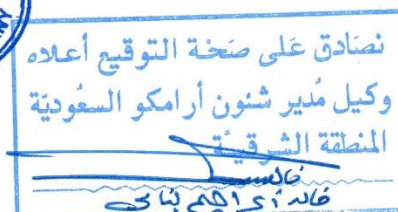 نصَادق عَلى صَحْة التوقيع أعلاه
وكيل مُدير شئون أرامكو السعُوديّة
المنطقة الشرقيـَّة
خالد